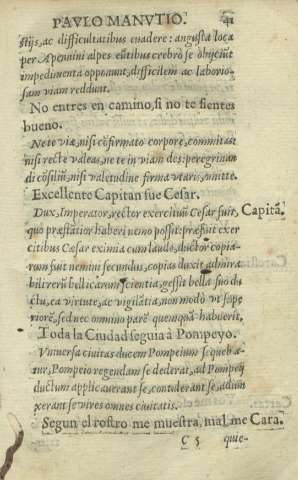 PAVLO MANVTIO. 41
stijs, ac difficultatibus euadere: angustæ loca
per Apennini alpes eũtibus crebrò se obijciũt
impedimenta opponunt, difficilem ac laborio-
sam viam reddunt.
No entres en camino, si no te sientes
bueno.
Ne te viæ, nisi cõfirmato corpore, committas:
nisi rectè valeas, ne te in viam des: peregrinan
di cõsiliũ, nisi valetudine firma vtaris, omitte.
Excellente Capitan fue Cesar.
Dux, Imperator, rector exercituũ Cesar fuit, Capitã.
quo præstãtior haberi nemo possit: præfuit exer
citibus Cesar eximia cum laude, ductor copia-
rum fuit nemini secundus, copias duxit admira
bili rerũ bellicarum scientia, gessit bella suo du
ctu, ea virtute, ac vigilãtia, non modò vt supe
riorẽ, sed nec omnino parẽ quemquã habuerit,
Toda la Ciudad seguia à Pompeyo.
Vniuersa ciuitas ducem Pompeium sequeba
tur, Pompeio regendam se dederat, ad Pompeij
ductum applicauerant se, contulerant se, adiũn
xerant se vires omnes ciuitatis.
Segun el rostro me muestra, mal me Cara.
C 5 que-